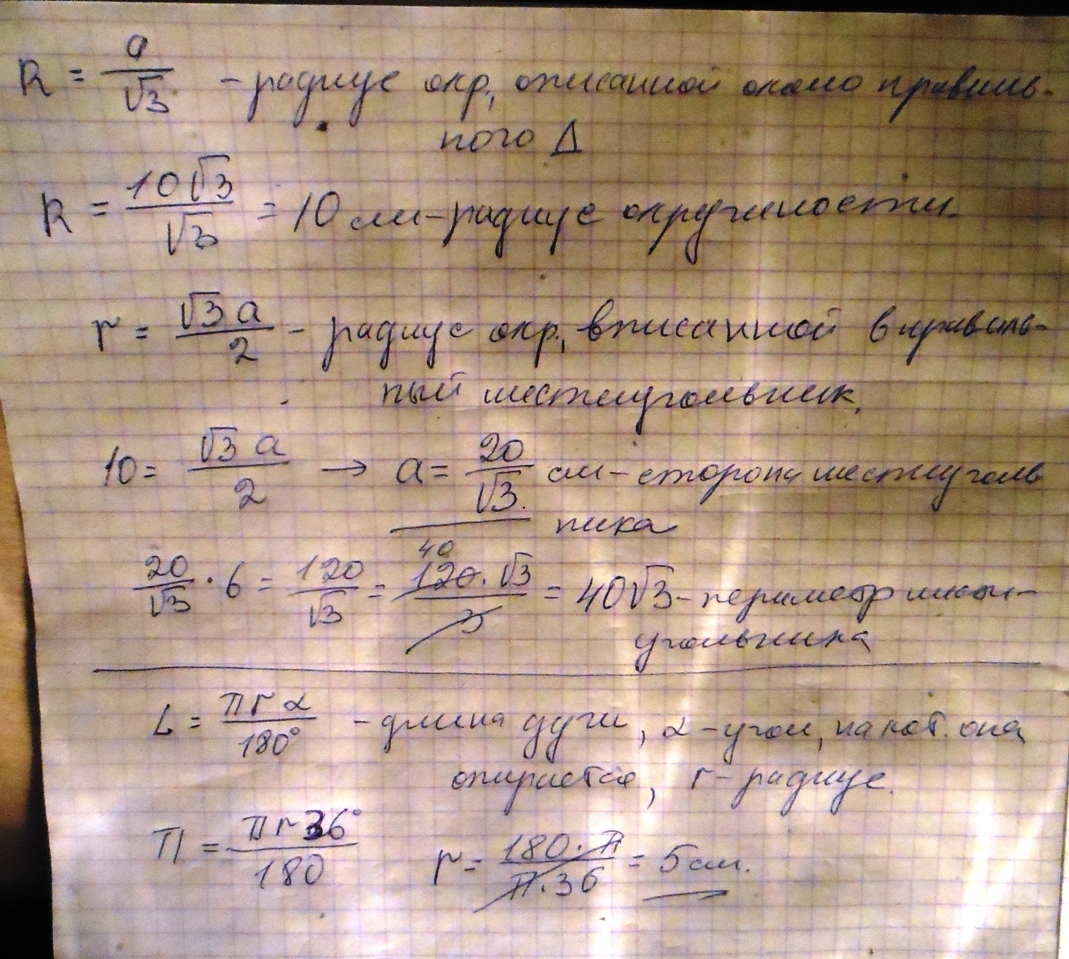 R = a/√3 - радиус окр, описанной около правиль-
ного Δ
R = 10√3/√3 = 10 см - радиус окружности.
r = √3 a/2 - радиус окр., вписанной в правиль-
ный шестиугольник.
10 = √3 a/2 → a = 20/√3 см - сторона шестиуголь
ника
20/√3 · 6 = 120/√3 = 40 120·√3/3 = 40√3 - периметр шест-
угольника
L = πrα/180° - длина дуги, α - угол, на кот. она
опирается, r - радиус.
π = πr36°/180 r = 180·π/π·36 = 5 см.